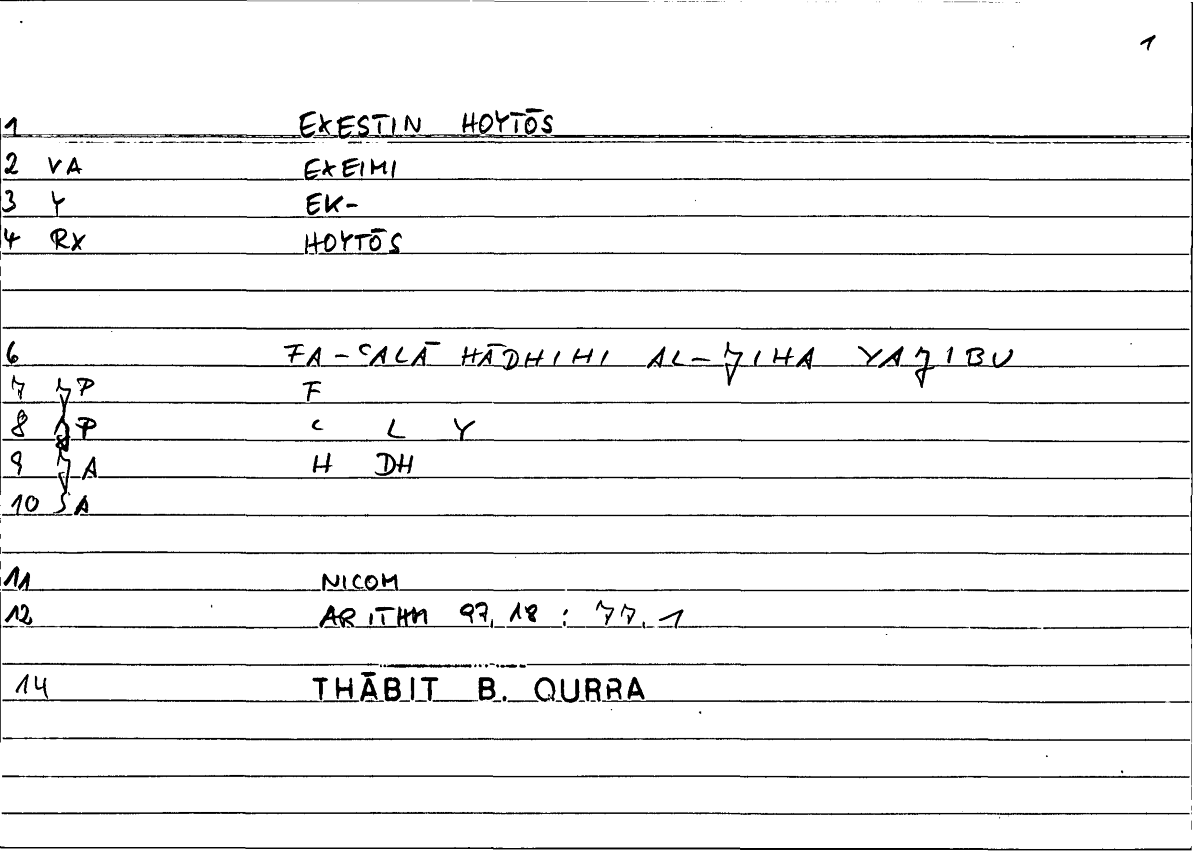 1
1 EXESTIN HOYTŌS
2 VA EXEIMI
3 Y EK-
4 RX HOYTŌS
6 FA-ʿALĀ HĀDHIHI AL-JIHA YAJIBU
7 P F
8 P ʿ L Y
9 JA H DH
10 SA
11 NICOM
12 ARITHM 97,18 : 77,1
14 THĀBIT B. QURRA